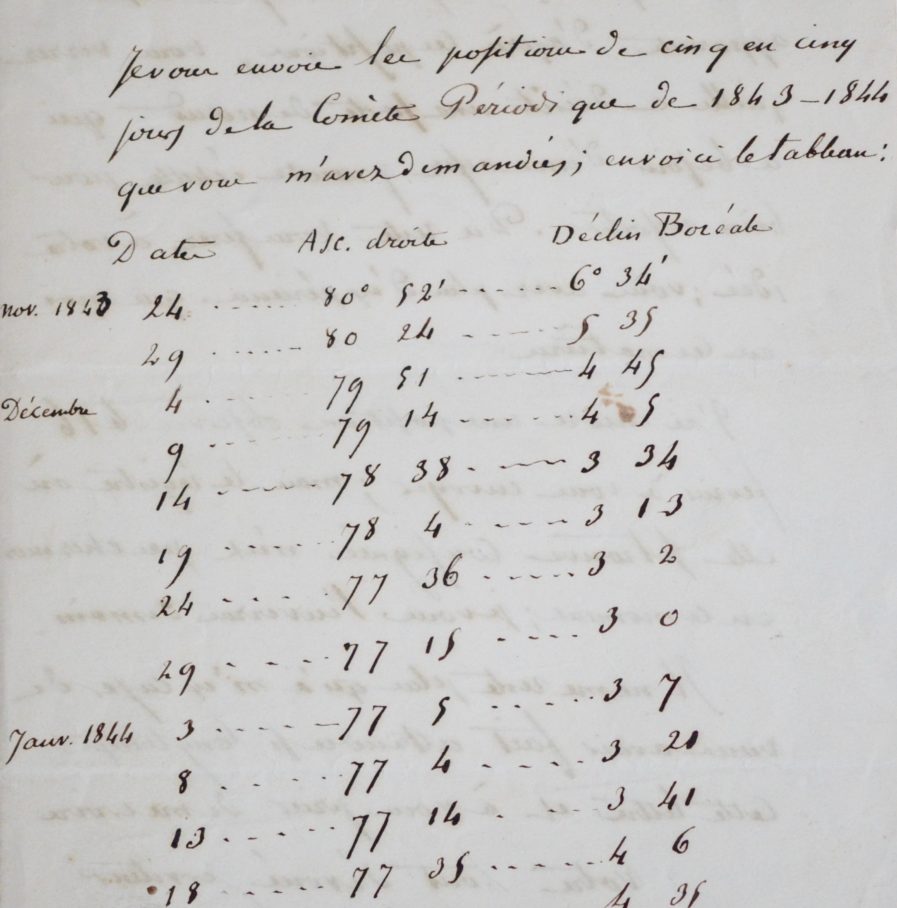 Je vous envoie les positions de cinq en cinq
jours de la Comète Périodique de 1843–1844
que vous m'avez demandées; en voici le tableau:
Dates Asc. droite Déclin Boréale
nov. 1843 24 ..... 80° 52' ...... 6° 34'
29 ...... 80 24 ...... 5 35
Décembre 4 ...... 79 51 ...... 4 45
9 ...... 79 14 ...... 4 5
14 ...... 78 38 ...... 3 34
19 ...... 78 4 ...... 3 13
24 ...... 77 36 ...... 3 2
29 ...... 77 15 ..... 3 0
Janv. 1844 3 ...... 77 5 ..... 3 7
8 ...... 77 4 ..... 3 21
13 ...... 77 14 ..... 3 41
18 ...... 77 35 ...... 4 6
4 35